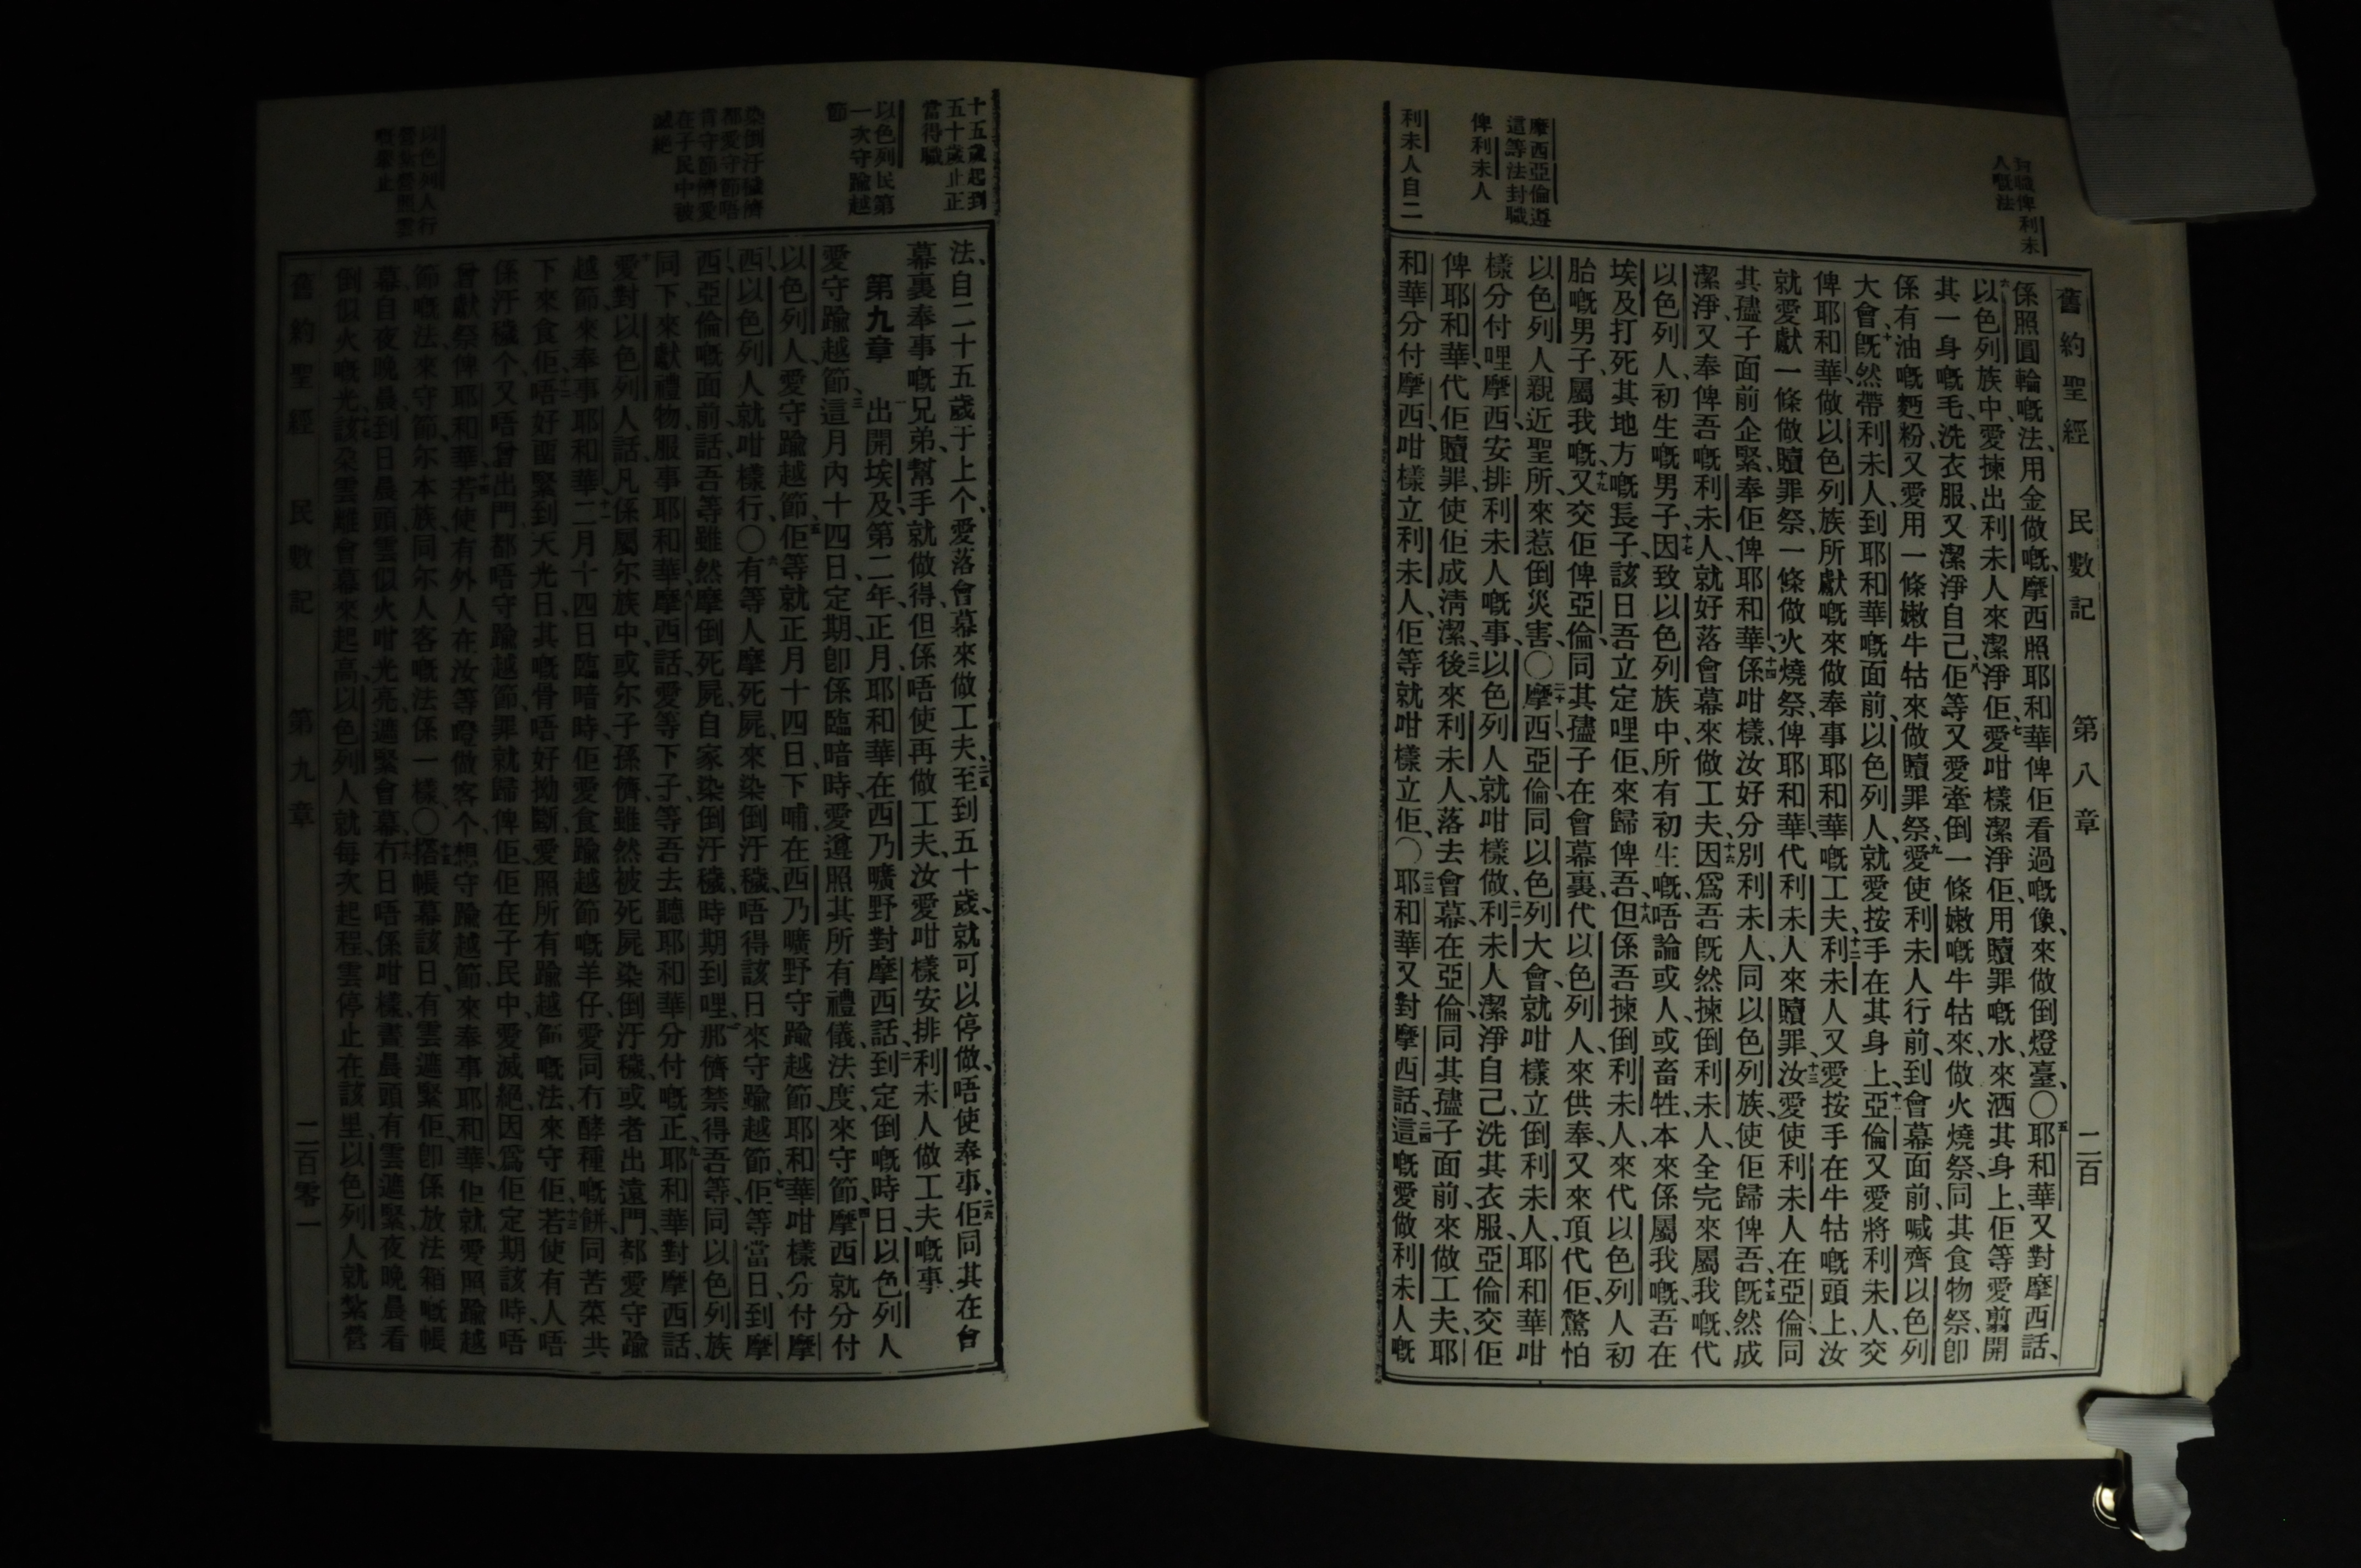 舊約聖經 民數記 第八章 二百
封職俾利未
人嘅法
摩西亞倫遵
這等法封職
俾利未人
利未人自二
係照圓輪嘅法、用金做嘅、摩西照耶和華俾佢看過嘅像、來做倒燈臺、〇五耶和華又對摩西話、
六以色列族中、愛揀出利未人來潔淨佢、七愛咁樣潔淨佢、用贖罪嘅水、來洒其身上、佢等愛剪開
其一身嘅毛、洗衣服、又潔淨自己、八佢等又愛牽倒一條嫩嘅牛牯來、做火燒祭、同其食物祭、卽
係有油嘅麪粉、又愛用一條嫩牛牯來做贖罪祭、九愛使利未人行前、到會幕面前、喊齊以色列
大會、十旣然帶利未人、到耶和華嘅面前、以色列人、就愛按手在其身上、十一亞倫又愛將利未人、交
俾耶和華、做以色列族所獻嘅、來做奉事耶和華嘅工夫、十二利未人又愛按手在牛牯嘅頭上、汝
就愛獻一條做贖罪祭、一條做火燒祭、俾耶和華、代利未人來贖罪、十三汝愛使利未人在亞倫同
其孻子面前企緊、奉佢俾耶和華、十四係咁樣、汝好分別利未人、同以色列族、使佢歸俾吾、十五旣然成
潔淨、又奉俾吾嘅利未人、就好落會幕來做工夫、十六因爲吾旣然揀倒利未人、全完來屬我嘅、代
以色列人、初生嘅男子、十七因致以色列族中、所有初生嘅、唔論或人、或畜牲、本來係屬我嘅、吾在
埃及打死其地方嘅長子、該日吾立定哩佢、來歸俾吾、十八但係吾揀倒利未人、來代以色列人初
胎嘅男子、屬我嘅、十九又交佢俾亞倫、同其孻子在會幕裏、代以色列人、來供奉、又來頂代佢、驚怕
以色列人親近聖所、來惹倒災害、〇二十摩西、亞倫、同以色列大會、就咁樣立倒利未人、耶和華咁
樣分付哩摩西、安排利未人嘅事、以色列人就咁樣做、二一利未人潔淨自己、洗其衣服、亞倫交佢
俾耶和華、代佢贖罪、使佢成淸潔、二二後來利未人、落去會幕、在亞倫、同其孻子面前、來做工夫、耶
和華分付摩西、咁樣立利未人、佢等就咁樣立佢、〇二三耶和華又對摩西話、二四這嘅愛做利未人嘅
十五歲起到
五十歲止正
當得職
以色列民第
一次守踰越
節
染倒汙穢儕
都愛守節唔
肯守節儕愛
在子民中被
滅絕
以色列人行
法、自二十五歲于上个、愛落會幕來做工夫、二五至到五十歲、就可以停做、唔使奉事、二六佢同其在會
幕裏奉事嘅兄弟、幫手就做得、但係唔使再做工夫、汝愛咁樣安排利未人做工夫嘅事、
第九章 一出開埃及第二年、正月、耶和華在西乃曠野對摩西話、二到定倒嘅時日、以色列人
愛守踰越節、三這月內十四日、定期、卽係臨暗時、愛遵照其所有禮儀、法度、來守節、四摩西就分付
以色列人、愛守踰越節、五佢等就正月十四日下晡、在西乃曠野守踰越節、耶和華咁樣分付摩
西、以色列人就咁樣行、〇六有等人摩死屍、來染倒汙穢、唔得該日來守踰越節、佢等當日到摩
西亞倫嘅面前、七話、吾等雖然摩倒死屍、自家染倒汙穢、時期到哩、那儕禁得吾等、同以色列族
同下、來獻禮物服事耶和華、八摩西話、愛等下子、等吾去聽耶和華分付嘅正、九耶和華對摩西話、
十愛對以色列人話、凡係屬尔族中、或尔子孫儕、雖然被死屍染倒汙穢、或者出遠門、都愛守踰
越節、來奉事耶和華、十一二月十四日臨暗時、佢愛食踰越節嘅羊仔、愛同冇酵種嘅餅、同苦菜共
下來食佢、十二唔好畱緊到天光日、其嘅骨唔好拗斷、愛照所有踰越節嘅法、來守佢、十三若使有人唔
係汙穢个、又唔曾出門、都唔守踰越節、罪就歸俾佢、佢在子民中、愛滅絕、因爲佢定期該時、唔
曾獻祭俾耶和華、十四若使有外人在汝等嶝做客个、想守踰越節、來奉事耶和華、佢就愛照踰越
節嘅法、來守節、尔本族、同尔人客嘅法係一樣、〇十五搭帳幕該日、有雲遮緊佢、卽係放法箱嘅帳
幕、自夜晚晨、到日晨頭、雲似火咁光亮、遮緊會幕、十六冇日唔係咁樣、晝晨頭有雲遮緊、夜晚晨看
倒似火嘅光、十七該朶雲離會幕來起高、以色列人就每次起程、雲停止在該里、以色列人就紮營
舊約聖經 民數記 第九章 二百零一